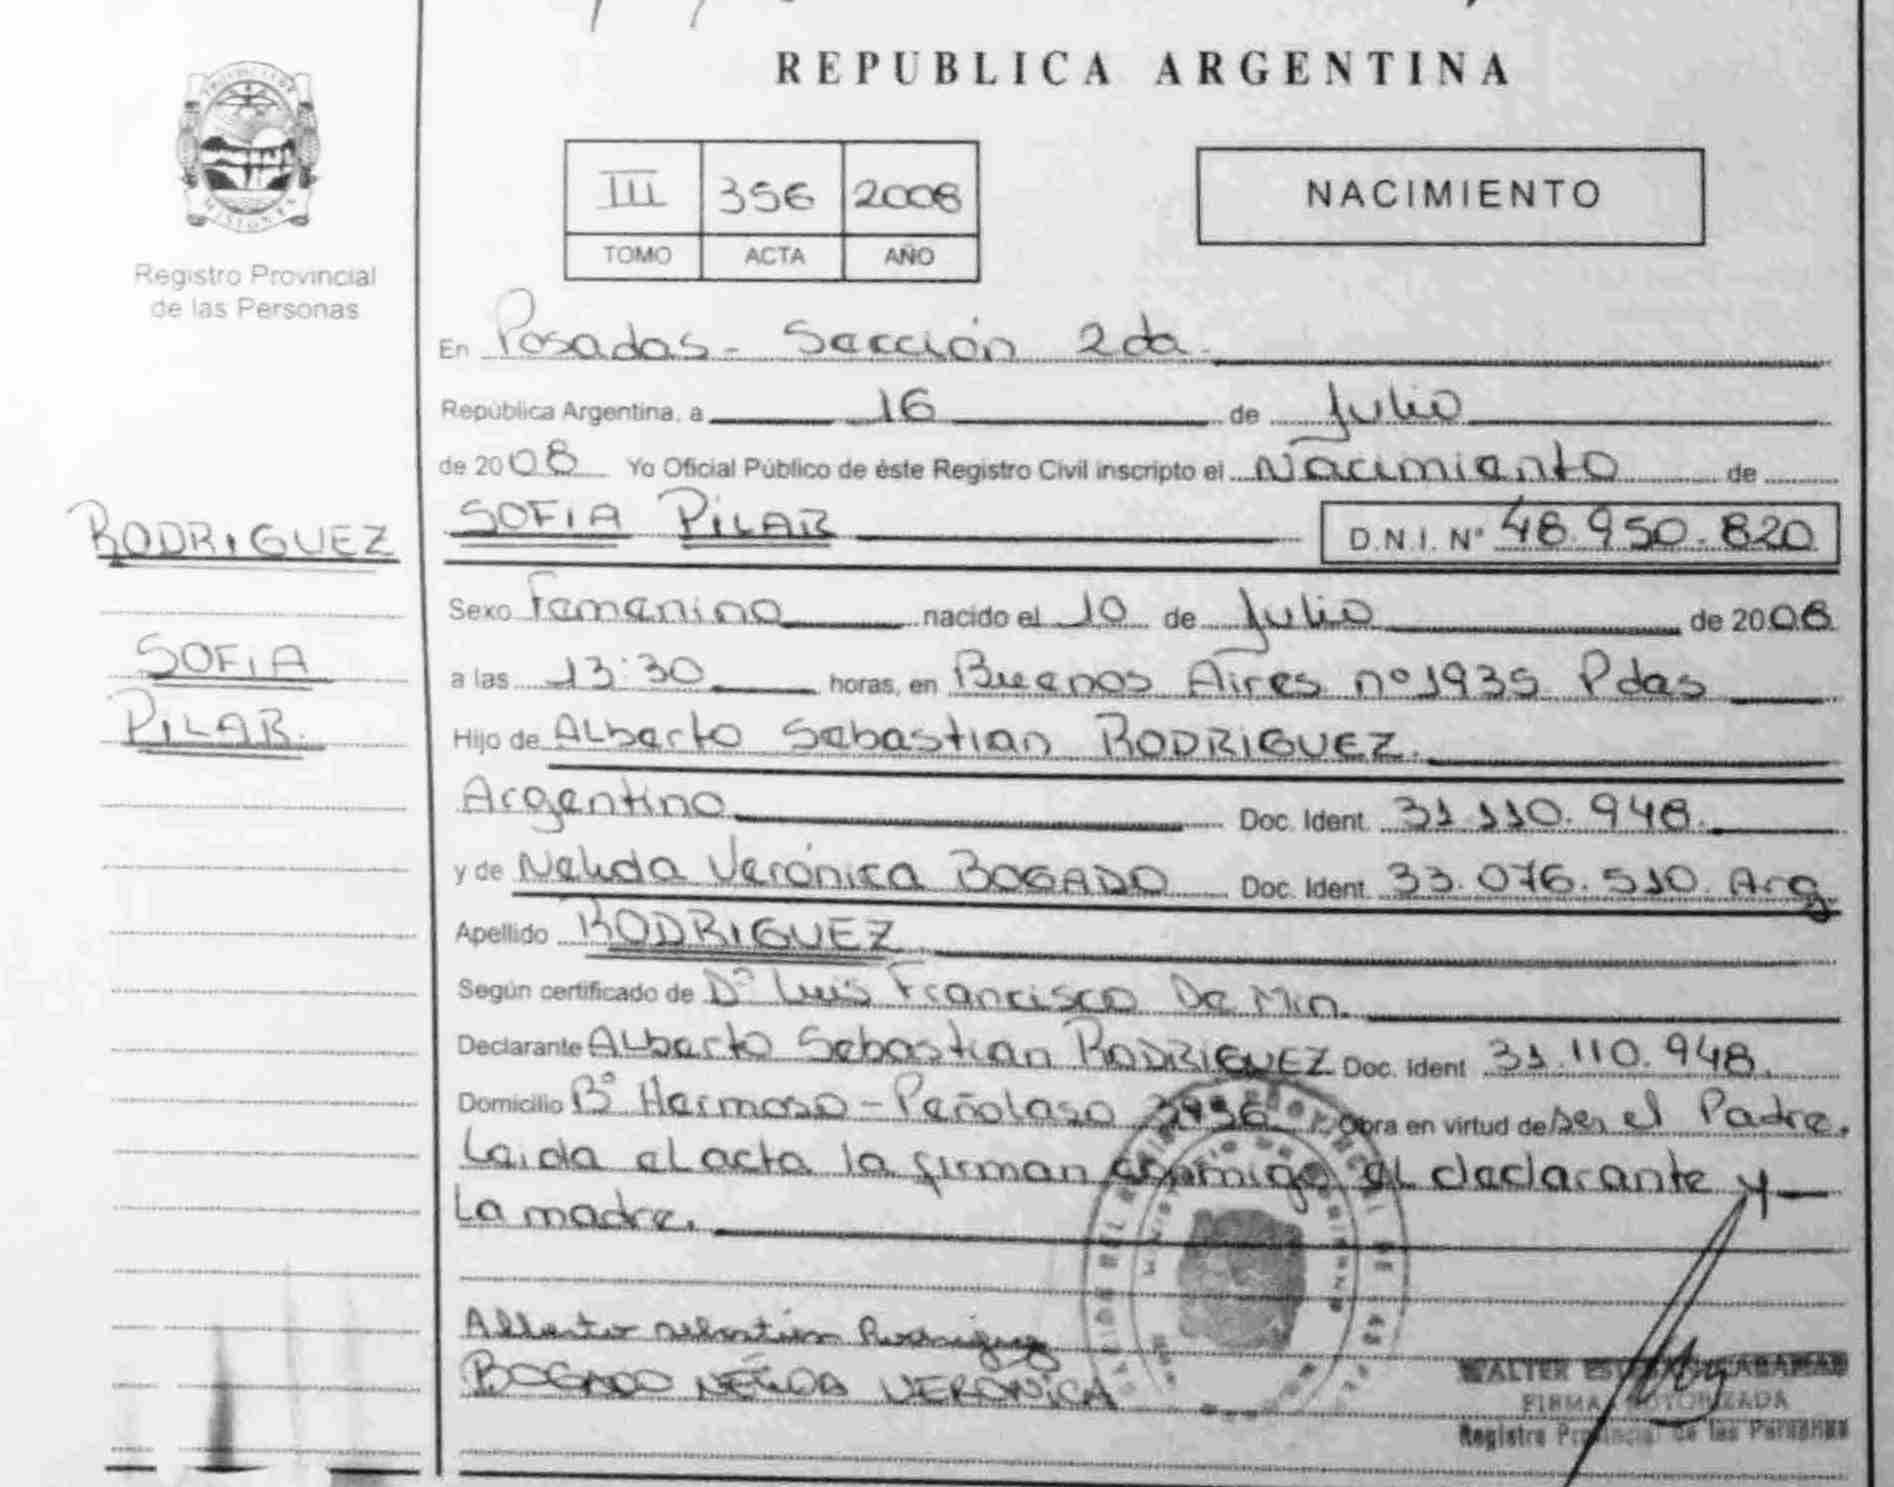 REPUBLICA ARGENTINA
III 356 2008
TOMO ACTA AÑO
NACIMIENTO
Registro Provincial
de las Personas
MISIONES
En Posadas - Sección 2da.
República Argentina, a 16 de Julio
de 2008 Yo Oficial Público de éste Registro Civil inscripto el Nacimiento de
RODRIGUEZ
SOFIA
PILAR.
SOFIA PILAR D.N.I. Nº 48.950.820
Sexo Femenino nacido el 10 de Julio de 2008
a las 13:30 horas, en Buenos Aires nº 1935 Pdas
Hijo de Alberto Sebastian RODRIGUEZ.
Argentino Doc. Ident. 31.110.948.
y de Nelida Verónica BOGADO Doc. Ident. 33.076.510. Arg
Apellido RODRIGUEZ
Según certificado de Dº Luis Francisco De Min.
Declarante Alberto Sebastian RODRIGUEZ Doc. Ident 31.110.948.
Domicilio Bº Hermoso - Peñoloso Obra en virtud de ser el Padre.
Leida el acta la firman conmigo el declarante y
La madre.
Alberto Sebastián Rodriguez
BOGADO NÉLIDA VERONICA
WALTER
FIRMA AUTORIZADA
Registro Provincial de las Personas